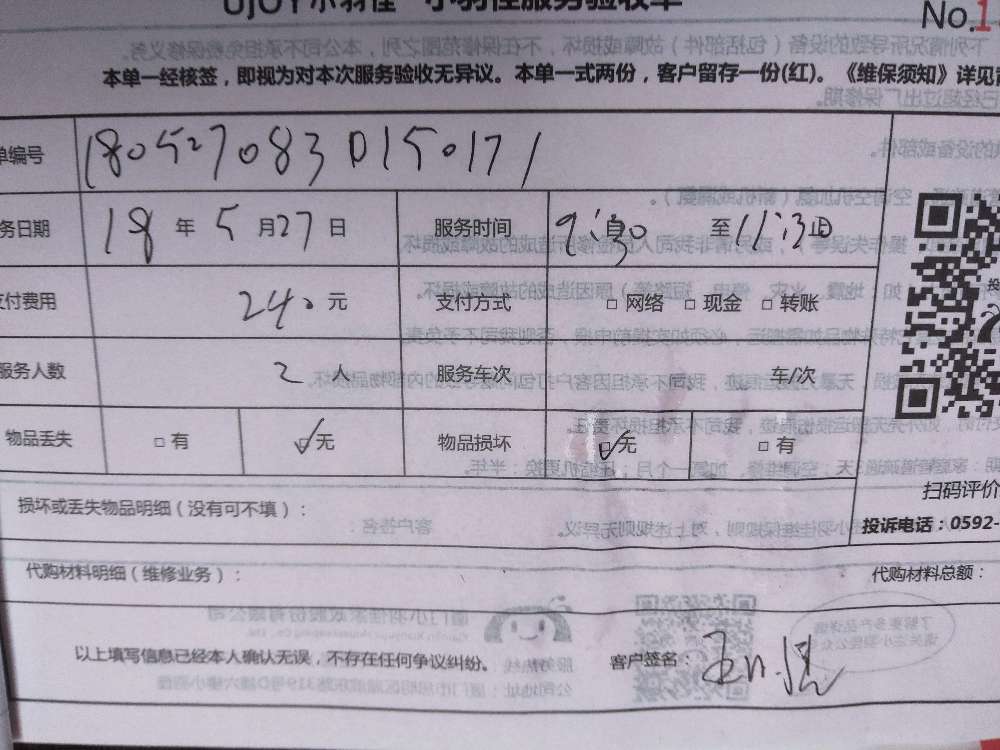 UJOY小羽佳 小羽佳服务验收单
No.1
本单一经核签，即视为对本次服务验收无异议。本单一式两份，客户留存一份(红)。《维保须知》详见
单编号 180527083D150171
务日期 18 年 5 月 27 日 服务时间 9:30 至 11:30
支付费用 240 元 支付方式 □ 网络 □ 现金 □ 转账
服务人数 2 人 服务车次 车/次
物品丢失 □ 有 ☑ 无 物品损坏 ☑ 无 □ 有
扫码评价
损坏或丢失物品明细（没有可不填）：
投诉电话：0592-
代购材料明细（维修业务）： 代购材料总额：
以上填写信息已经本人确认无误，不存在任何争议纠纷。 客户签名：